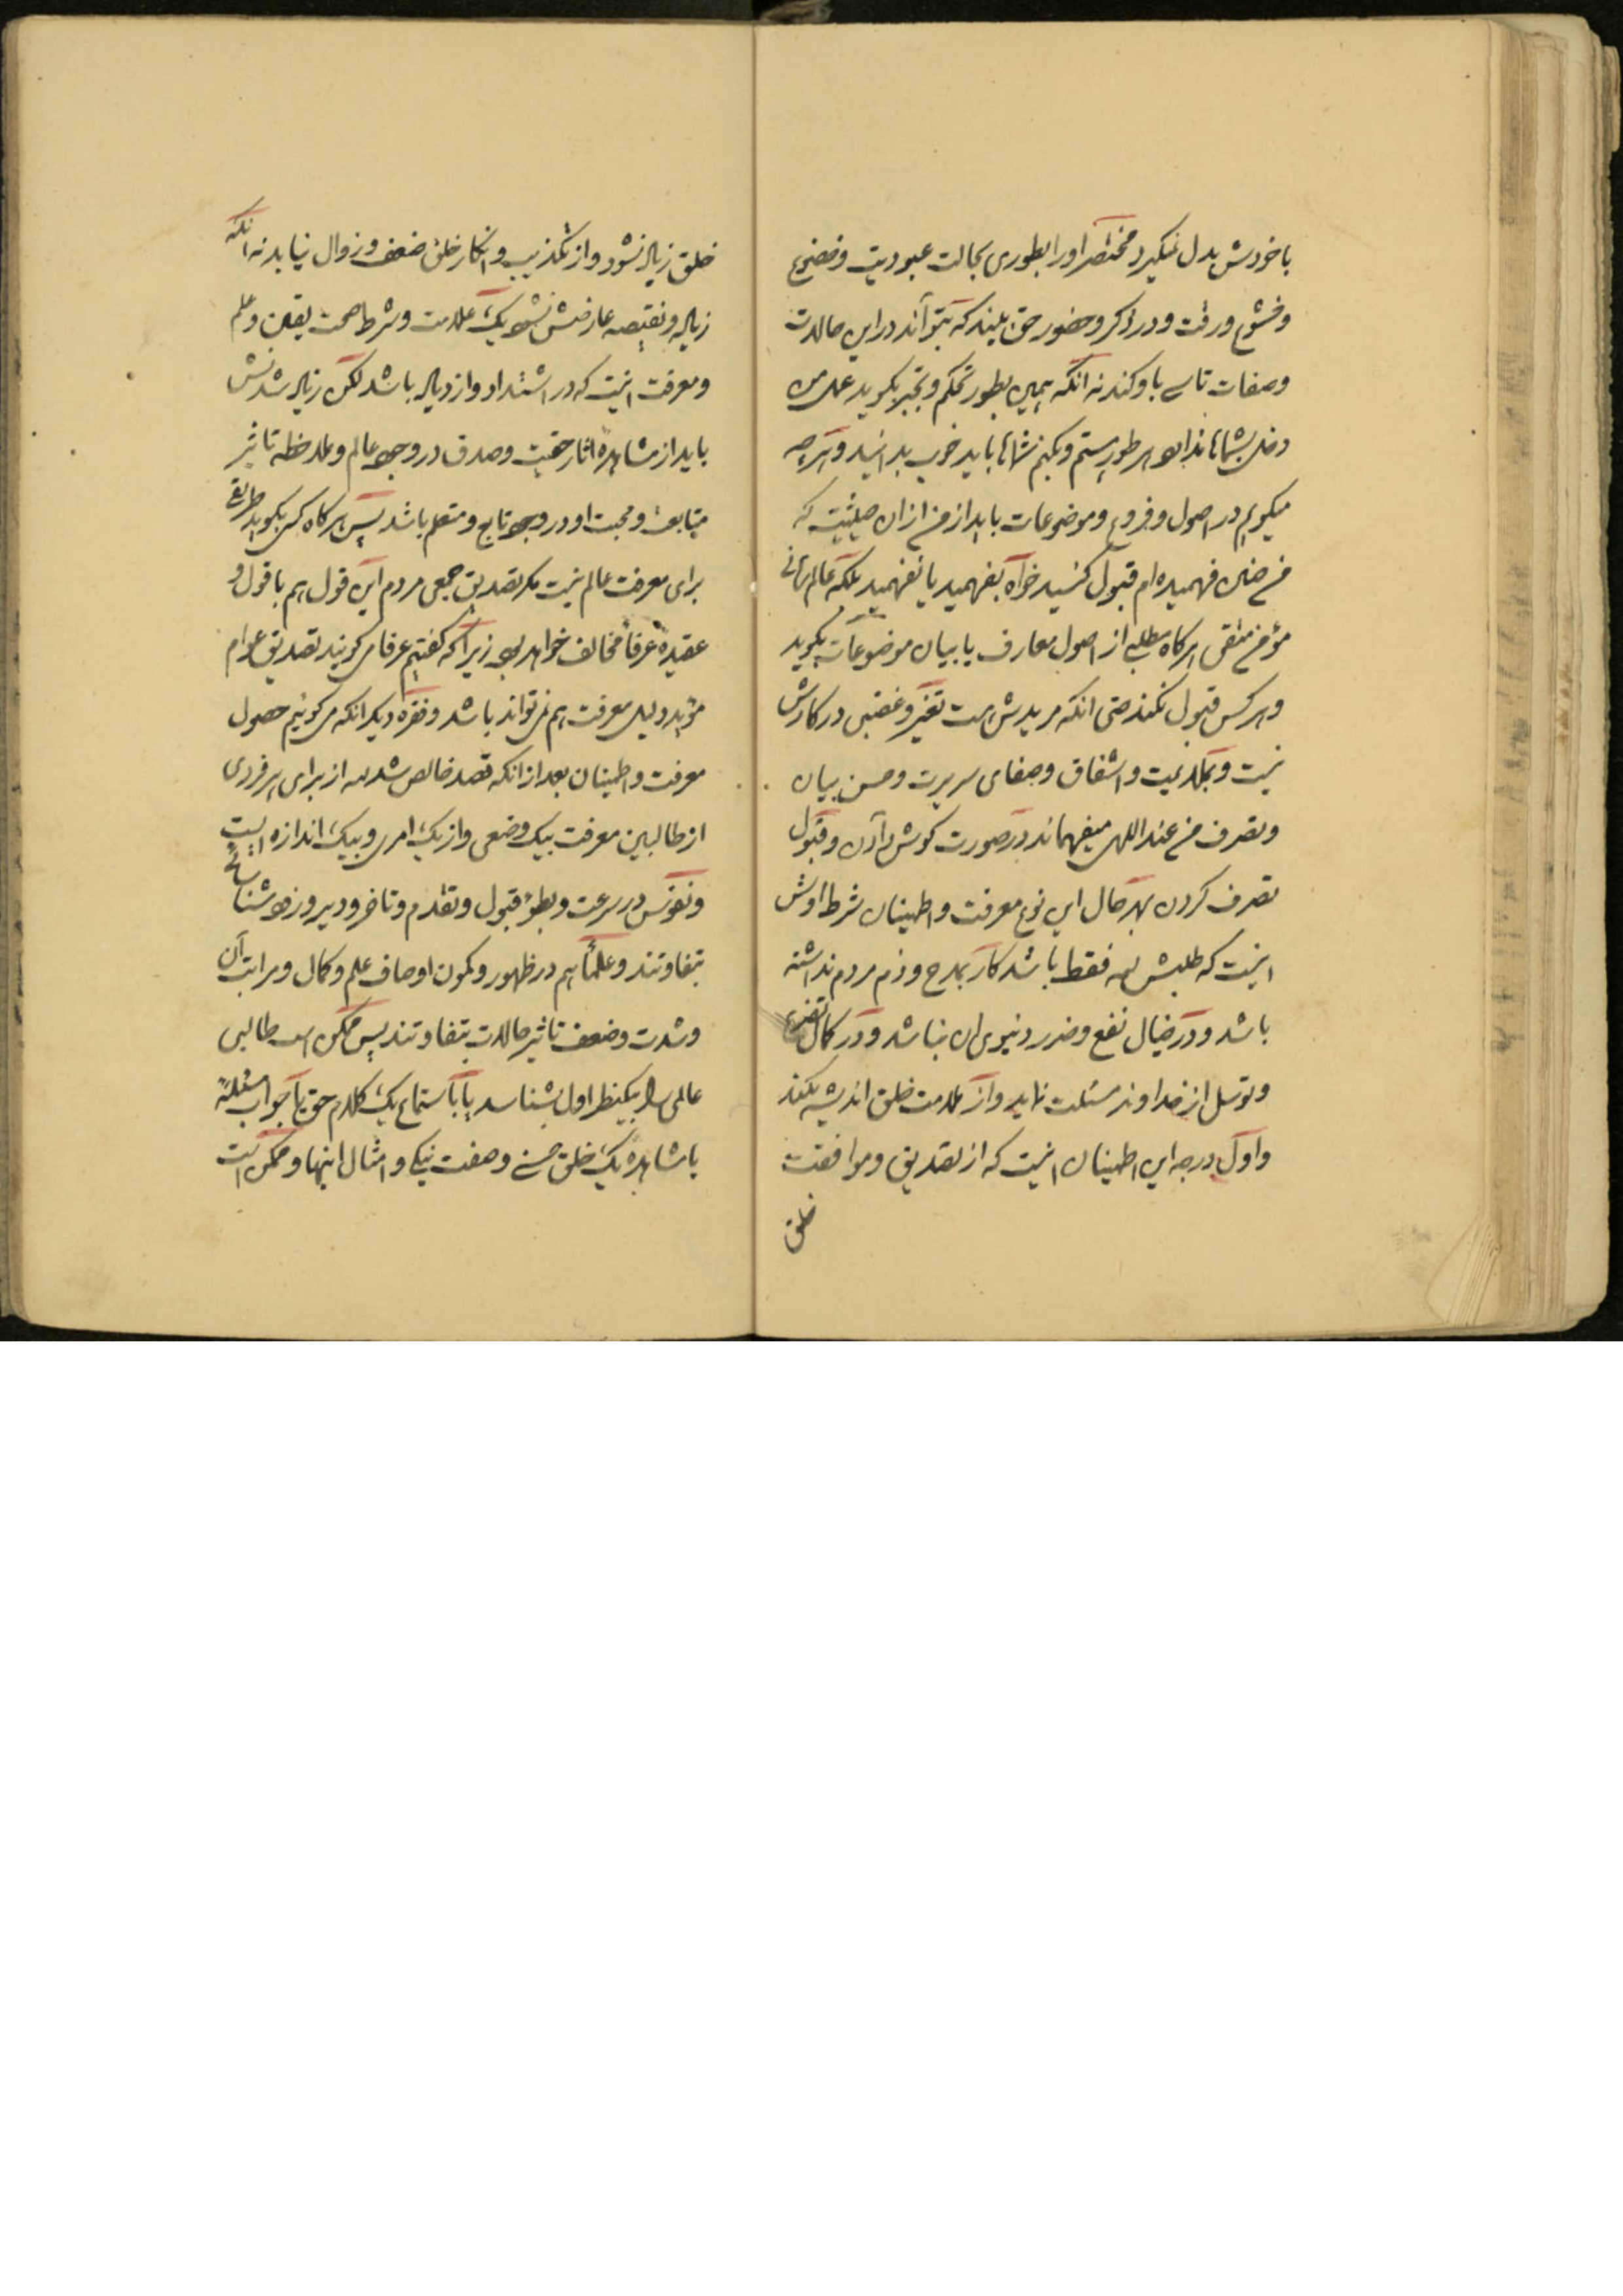 با خودش بدل نمیگیرد مختصراً او را بطوری بحالت عبودیت و خضوع
و خشوع و رقت و در ذکر و حضور حق بیند که بتواند در این حالات
و صفات تاسی باو کند نه آنکه همین بطور تحکم و تجبر بگوید عمل من
دخلی بشماها ندارد هر طور هستم و بکنم شماها باید خوب بدانید و هرچه
میگویم در اصول و فروع و موضوعات باید از من از آن حیثیت که
من چنین فهمیده ام قبول کنید خواه بفهمید یا نفهمید بلکه عالم ربانی
مؤمن متقی هرگاه مطلبی از اصول معارف یا بیان موضوعات بگوید
و هر کس قبول نکند حتی آنکه مریدش است تغیر و غضبی در کارش
نیست و بملایمت و اشفاق و صفای سریرت و حسن بیان
و تصرف من عند اللهی میفهماند در صورت گوش دادن و قبول
تصرف کردن بهر حال این نوع معرفت و اطمینان شرط اوش
اینست که طلبش لله فقط باشد کار بمدح و ذم مردم نداشته
باشد و در خیال نفع و ضرر دنیوی آن نباشد و در کمال تضرع
و توسل از خداوند مسئلت نماید و از ملامت خلق اندیشه نکند
و اول درجه این اطمینان اینست که از تصدیق و موافقت
خلق
خلق زیاد نشود و از تکذیب و انکار خلق ضعف و زوال نیابد نه آنکه
زیاده و نقیصه عارضش نشود یک علامت و شرط صحت یقین و علم
و معرفت اینست که در اشتداد و ازدیاد باشد لکن زیاد شدنش
باید از مشاهده آثار حقیت و صدق در وجود عالم و ملاحظه تاثیر
متابعت و محبت او در وجود تابع و متعلم باشد پس هرگاه کسی بگوید طریقی
برای معرفت عالم نیست مگر تصدیق جمعی مردم این قول هم با قول و
عقیده عرفا مخالف خواهد بود زیرا که گفتیم عرفا می گویند تصدیق عوام
مؤید دلیل معرفت هم نمی تواند باشد و فقره دیگر آنکه می گوئیم حصول
معرفت و اطمینان بعد از آنکه قصد خالص شد لله از برای هر فردی
از طالبین معرفت بیک وضعی و از یک امری و بیک اندازه است
و نفوس در سرعت و بطوء قبول و تقدم و تاخر و دیر و زود شناسائی
متفاوتند و علما هم در ظهور و کمون اوصاف علم و کمال و مراتب آن
و شدت و ضعف تاثیر حالات متفاوتند پس ممکن است طالبی
عالمی را بیکنظر اول بشناسد یا باستماع یک کلام حق یا جواب مسئله
یا مشاهده یک خلق حسن و صفت نیکی و امثال اینها و ممکن است